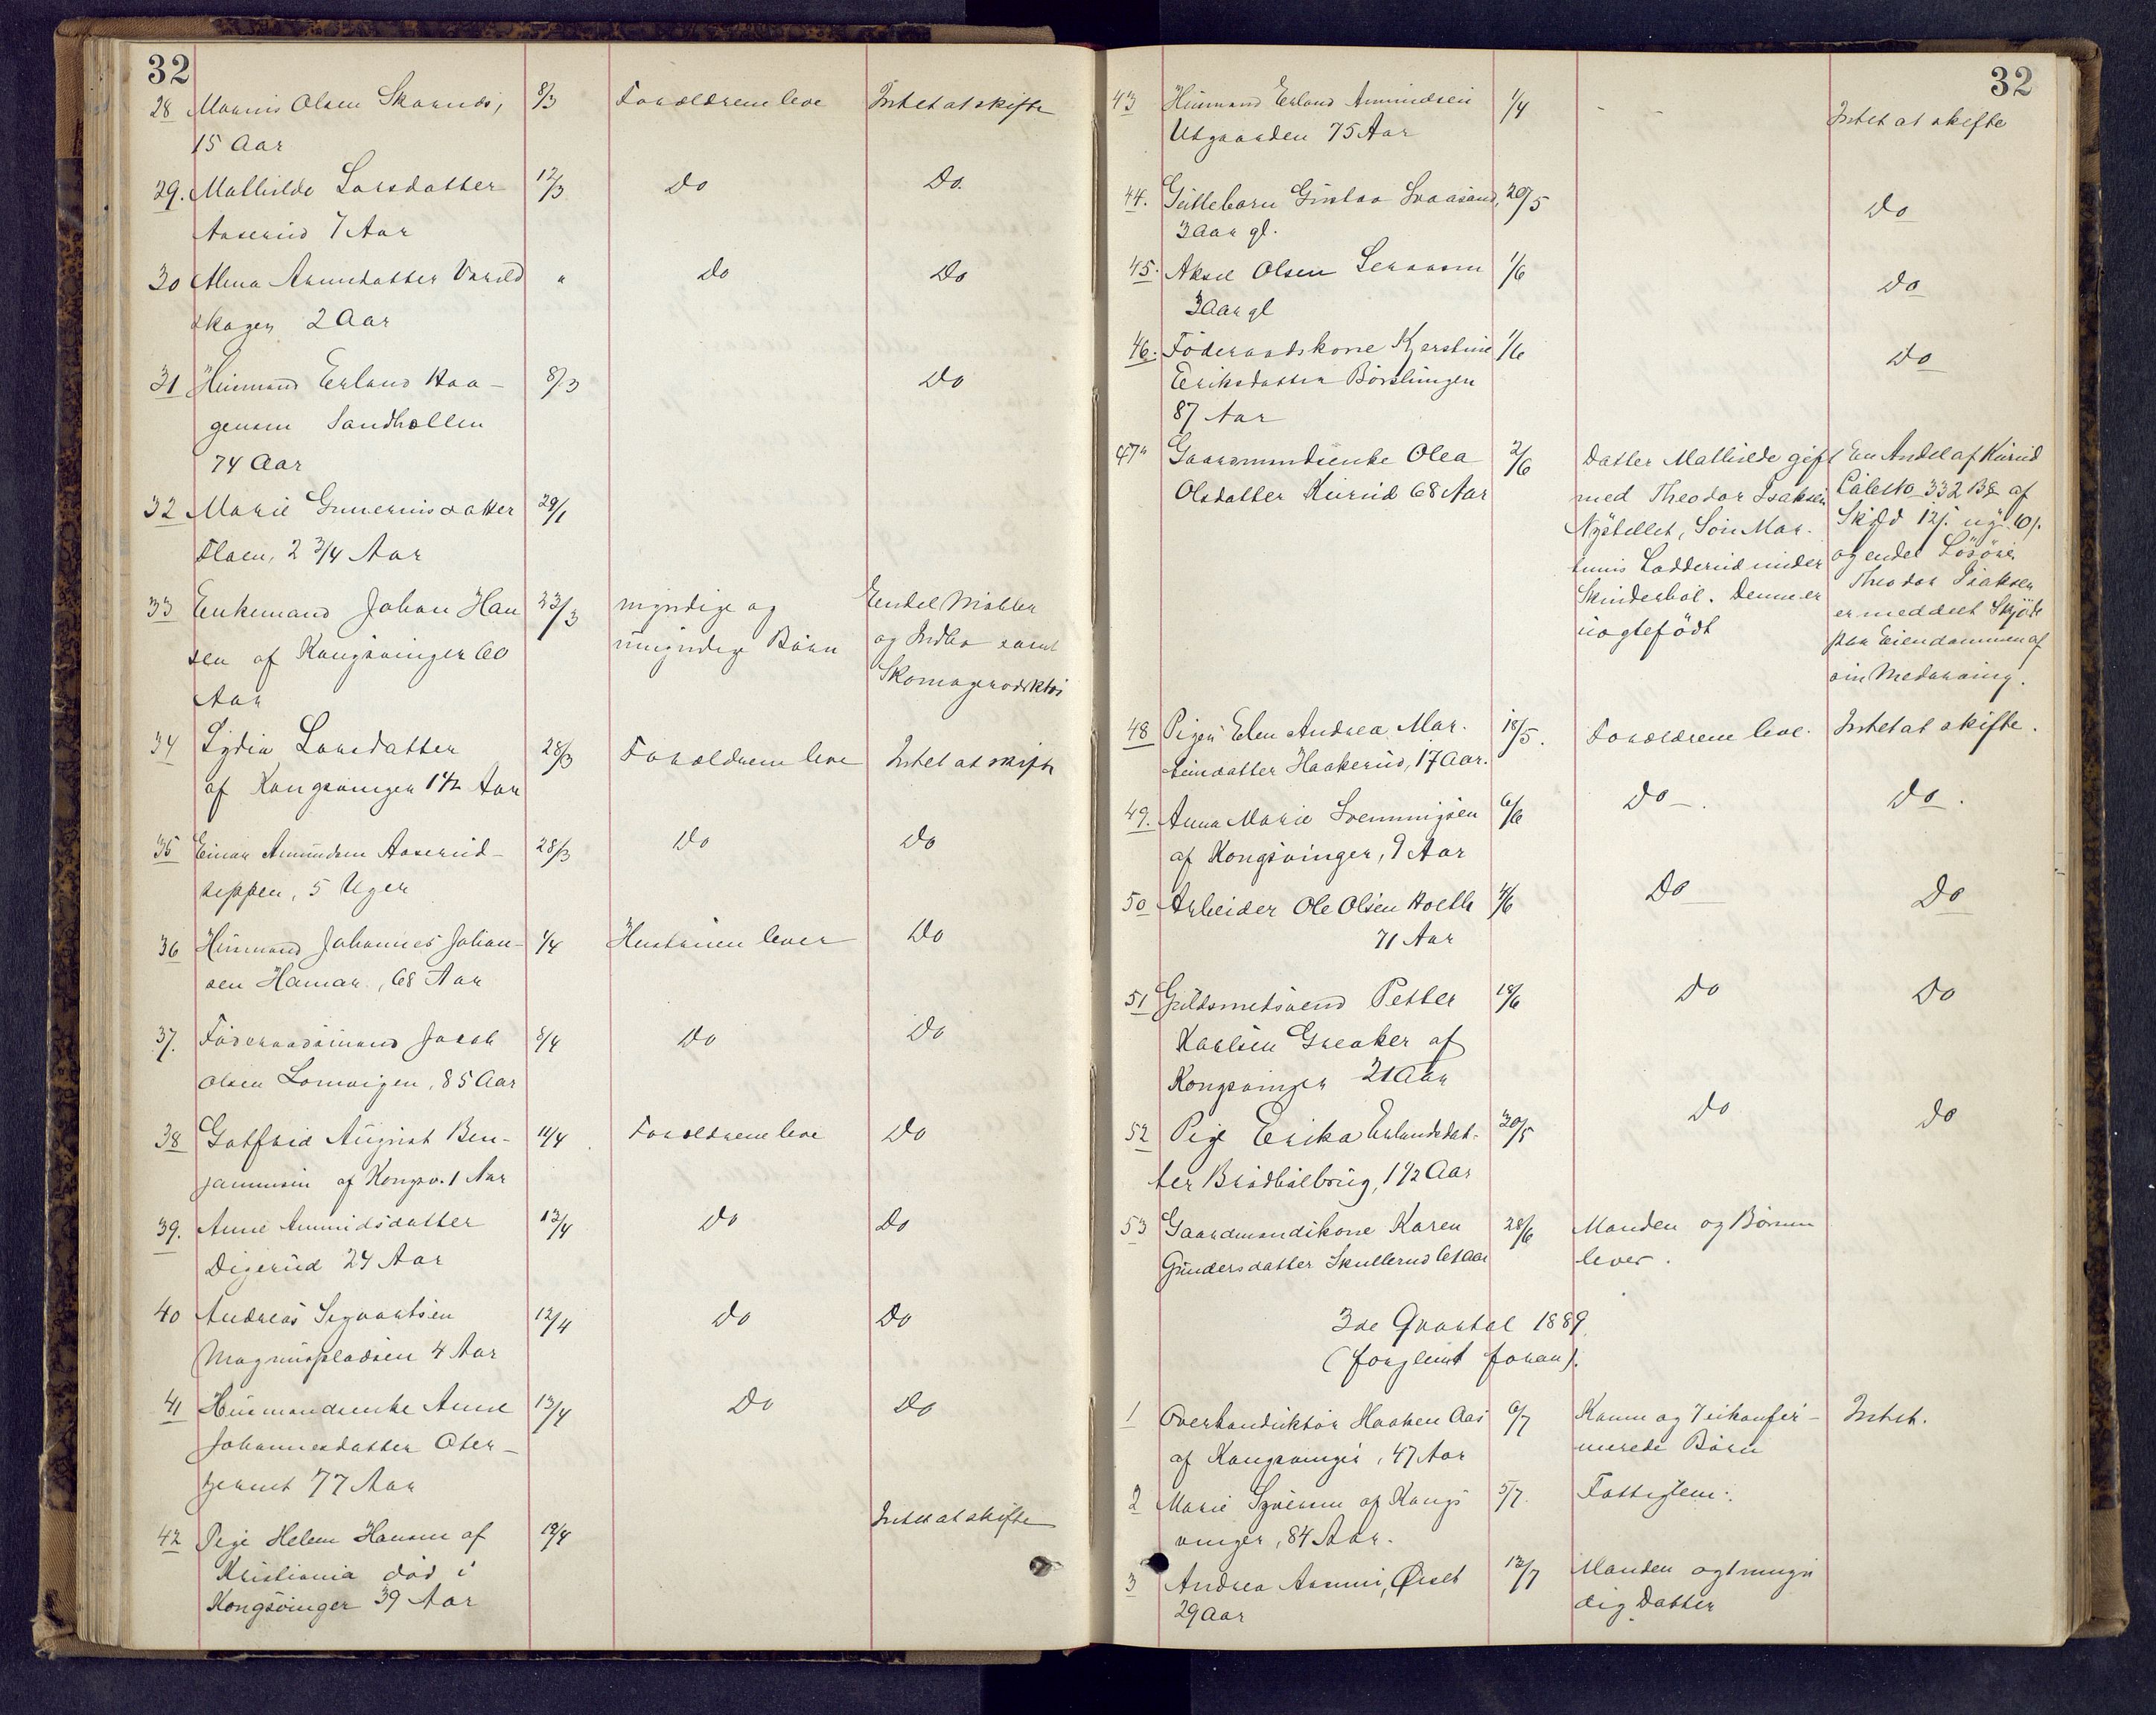 32
28 Olsen 8/3 Forældrene leve Intet at skifte
15 Aar
29. Mathilde Larsdatter 12/3 Do Do.
Aaserud 7 Aar
30 Datter " Do Do
skogen 2 Aar
31 Husmand Erland Haa- 8/3 Do
gensen Sandhollen
74 Aar
32 Marie Gunerius datter 29/1
2 3/4 Aar
33 Enkemand Johan Han 23/3 myndige og Endel Møbler
sen af Kongsvinger 60 umyndige Børn og Indbo samt
Aar
34 Lydia Larsdatter 28/3 Forældrene leve Intet at skifte
af Kongsvinger 1 1/2 Aar
35 Einar Amundsen Aaserud- 28/3 Do Do
teppen, 5 Uger
36 Husmand Johannes Johan- 1/4 Hustruen lever Do
sen Hamar, 68 Aar
37. Føderaadsmand Jacob 8/4 Do Do
Olsen 85 Aar
38 Gotfried August Ben- 11/4 Forældrene leve Do
jaminsen af Kongsv. 1 Aar
39. Anne Amundsdatter 13/4 Do Do
Digerud 24 Aar
40 Andreas Sigvartsen 12/4 Do Do
Magnuspladsen 4 Aar
41 Husmandsenke Anne 13/4 Do Do
Johannesdatter Oter-
77 Aar
Intet at skifte
42 Pige Helene Hansen af 19/4
Kristiania død i
Kongsvinger 39 Aar
32
43 Husmand Erland Amundsen 1/4 - - Intet at skifte
Utgaarden 75 Aar
44. Gustav 20/5 Do
3 Aar gl.
45. Aksel Olsen 1/6 Do
3 Aar gl
46. Føderaadskone Kjerstine 1/6 Do
Eriksdatter
87 Aar
47 Gaardmandsenke Olea 2/6 Datter Mathilde gift En Andel af Kurud
Olsdatter Kurud 68 Aar med Theodor Isaksen 332 af
Søn Mar-
tinus under og endel Løsøre
Skinderbøl. Denne er Theodor Isaksen
uægtefødt er meddelt Skjøde
paa Eiendommen af
sin Medarving.
48 Pigen Elen Andrea Mar- 18/5. Forældrene leve. Intet at skifte.
tinsdatter Haakerud, 17 Aar.
49. Anna Marie 6/6 Do. Do.
af Kongsvinger, 9 Aar
50 Arbeider Ole Olsen 4/6 Do Do
71 Aar
51 Guldsmedsvend Petter 18/6 Do Do
Karlsen Greaker af
Kongsvinger 21 Aar
52 Pige Erika Erlandsdat- 30/5 Do Do
ter 1 1/2 Aar
53 Gaardmandskone Karen 28/6 Manden og Børnene
Gundersdatter Skullerud 61 Aar lever.
3de Qvartal 1889
(forglemt foran).
1 Overkonduktør Haaken Aas 6/7 Kone og 7 ukonfir- Intet.
af Kongsvinger, 47 Aar merede Børn
2 Marie af Kongs 5/7. Fattiglem.
vinger, 84 Aar.
3 Andrea 12/7 Manden og 1 umyn
29 Aar dig Datter